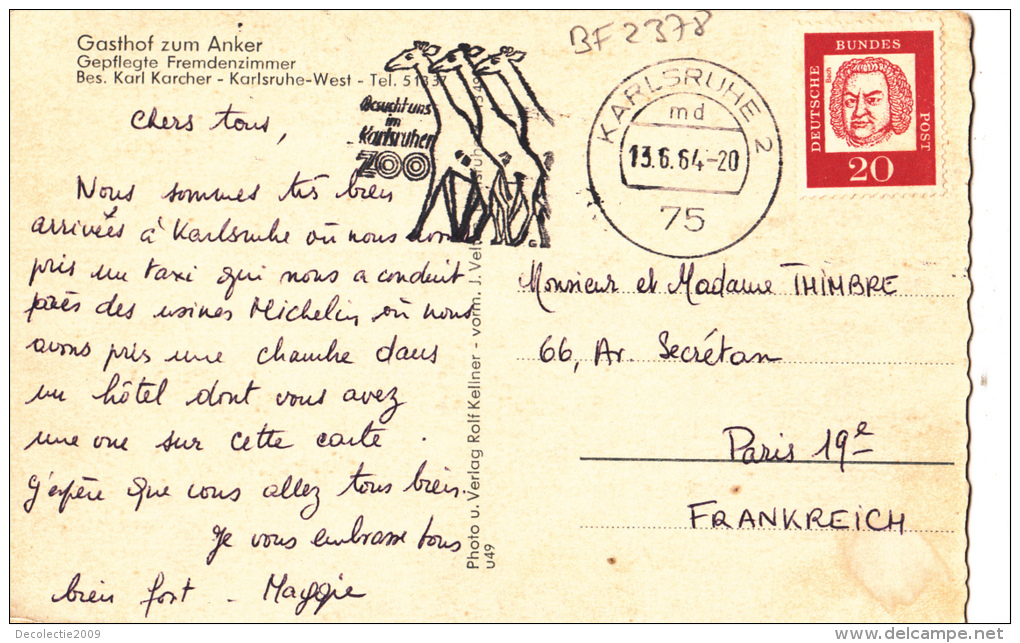 BF 2378
Gasthof zum Anker
Gepflegte Fremdenzimmer
Bes. Karl Karcher - Karlsruhe-West - Tel. 51337
Besucht uns
im
Karlsruher
ZOO
KARLSRUHE 2
md
13.6.64-20
75
DEUTSCHE
BUNDES
POST
Bach
20
Chers tous,
Nous sommes très bien
arrivées à Karlsruhe où nous avons
pris un taxi qui nous a conduit
près des usines Michelin où nous
avons pris une chambre dans
un hôtel dont vous avez
une vue sur cette carte.
J'espère que vous allez tous bien.
Je vous embrasse tous
bien fort - Maggie
Photo u. Verlag Rolf Kellner - vorm. J. Vel
U49
Monsieur et Madame THIMBRE
66, Av. Secrétan
Paris 19e
FRANKREICH
Decolectie2009
delcampe.net